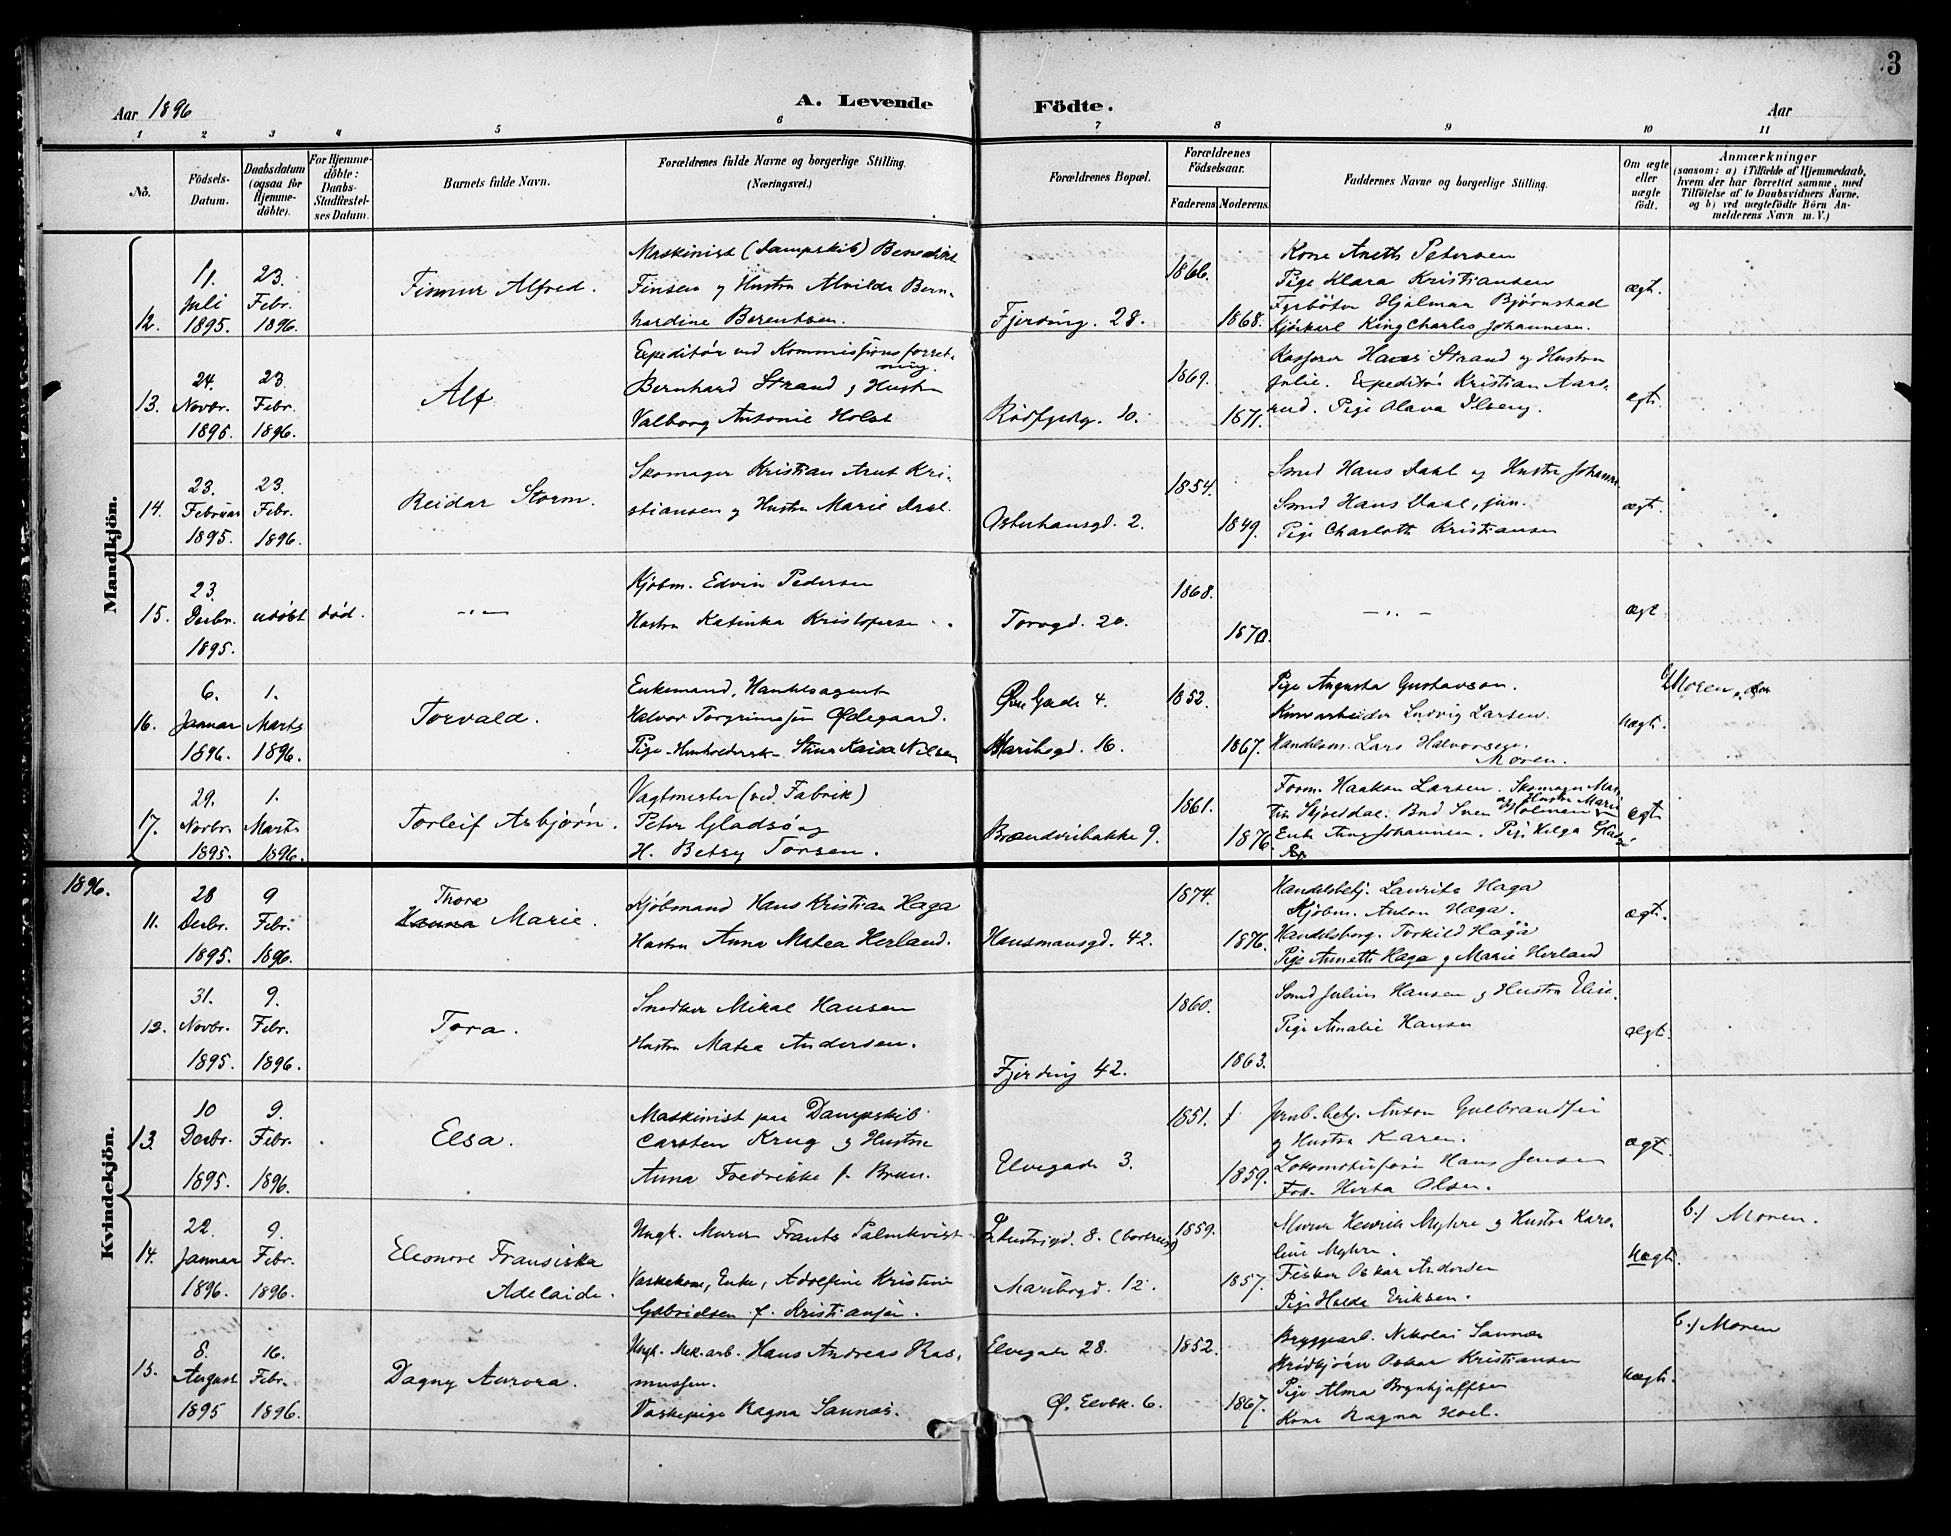 3
Aar 1896
A. Levende
Födte.
Aar
1 2 3 4 5 6 7 8 9 10 11
No.
Födsels-Datum.
Daabsdatum (ogsaa for Hjemme-döbte).
For Hjemme-döbte: Daabs-Stadfæstel-ses Datum.
Barnets fulde Navn.
Forældrenes fulde Navne og borgerlige Stilling. (Næringsvei.)
Forældrenes Bopæl.
Forældrenes Födselsaar.
Faderens. Moderens.
Faddernes Navne og borgerlige Stilling.
Om ægte eller uægte födt.
Anmærkninger
(saasom: a) i Tilfælde af Hjemmedaab,
hvem der har forrettet samme, med
Tilföielse af to Daabsvidners Navne.
og b) ved uægtefödte Börn An-
melderens Navn m. V.)
Mandkjön.
12. 11. Juli 1895. 23. Febr. 1896.
Finnur Alfred.
Maskinist (Dampskib) Benedikt
Finsen og Hustru Alvilda Bern-
hardine Berentsen.
Fjerding. 28.
1866. 1868.
Kone Aneth Petersen
Pige Klara Kristiansen
Fyrböter Hjalmar Bjørnstad
Kjörkarl King Charles Johannesen.
ægt.
13. 24. Novbr. 1895. 23. Febr. 1896.
Alf
Expeditör ved Kommissionsforret-
ning.
Bernhard Strand og Hustru
Valborg Antonie Holst
Rödfyldg. 10.
1869. 1871.
Kasserer Hans Strand og Hustru
Julie. Expeditör Kristian Aars-
rud. Pige Olava Ilseng.
ægt.
14. 23. Februar 1895. 23. Febr. 1896.
Reidar Storm.
Skomager Kristian Arnt Kri-
stiansen og Hustru Marie Dahl.
Osterhausgd. 2.
1854. 1849.
Smed Hans Dahl og Hustru Johanne.
Smed Hans Dahl, jun.
Pige Charlotte Kristiansen
ægt.
15. 23. Decbr. 1895. udöbt död.
-"-
Kjöbm. Edvin Pedersen
Hustru Katinka Kristofersen
Torvgd. 20.
1868. 1870.
-"-
ægt
16. 6. Januar 1896. 1. Marts 1896.
Torvald.
Enkemand, Handelsagent
Halvor Torgrimsen Ødegaard.
Pige Husholderske Stina Kaisa Nilsen
Øvre Gade 4.
Maribogd. 16.
1852. 1867.
Pige Augusta Gustavson.
Kunarbeider Ludvig Larsen.
Handelsm. Lars Halvorsen.
Moren.
uægt.
b/ Moren,
17. 29. Novbr. 1895. 1. Marts 1896.
Torleif Asbjørn.
Vagtmester (ved Fabrik)
Peter Gladsö og
H. Betsy Torsen.
Brændvinbakke 9.
1861. 1876.
Form. Haakon Larsen. Skomager Mar-
tin Skjoldal og Hustru Marie
Enke Johannesen. Pige Helga Gladsö
ægt
1896.
Kvindekjön.
11. 28 Decbr. 1895. 9 Febr. 1896.
Thora
Hanna Marie.
Kjöbmand Hans Kristian Haga
Hustru Anna Matea Herland.
Hausmansgd. 42.
1874. 1876.
Handelsbetj. Laurits Haga
Kjöbm. Anton Haga.
Handelsborg. Torkild Haga
Pige Annette Haga og Marie Herland
ægt.
12. 31. Novbr. 1895. 9. Febr. 1896.
Tora.
Snedker Mikal Hansen
Hustru Matea Andersen.
Fjerding 42.
1860. 1863.
Smed Julius Hansen og Hustru Elise.
Pige Amalie Hansen
ægt.
13. 10 Decbr. 1895. 9. Febr. 1896.
Elsa.
Maskinist paa Dampskib
Carsten Krug og Hustru
Anna Fredrikke f. Bruun.
Elvegade 3.
1851. 1859.
Jernb.betj. Anton Gulbrandsen
og Hustru Karen.
Lokomotivförer Hans Jensen
Frk. Herta Olsen.
ægt.
14. 22. Januar 1896. 9. Febr. 1896.
Eleonore Fransiska
Adelaide.
Ungk. Murer Frants Palmkvist
Vaskekone, Enke, Adolfine Kristine
Gabrielsen f. Kristiansen.
Industrigd. 8. (bortreist)
Maribogd. 12.
1859. 1857.
Murer Henrik Myhre og Hustru Karo-
line Myhre.
Fisker Oskar Andersen
Pige Hulda Eriksen.
uægt.
b.) Moren.
15. 8. August 1895 16. Febr. 1896.
Dagny Aurora.
Ungk. Mek. arb. Hans Andreas Ras-
mussen.
Vaskepige Ragna Saunæs.
Elvegade 28.
Ø. Elvbk. 6.
1852. 1867.
Bryggearb. Nikolai Saunæs
Brödkjörer Oskar Kristiansen
Pige Alma Brynhjulfsen
Kone Ragna Hoel.
uægt.
b.) Moren